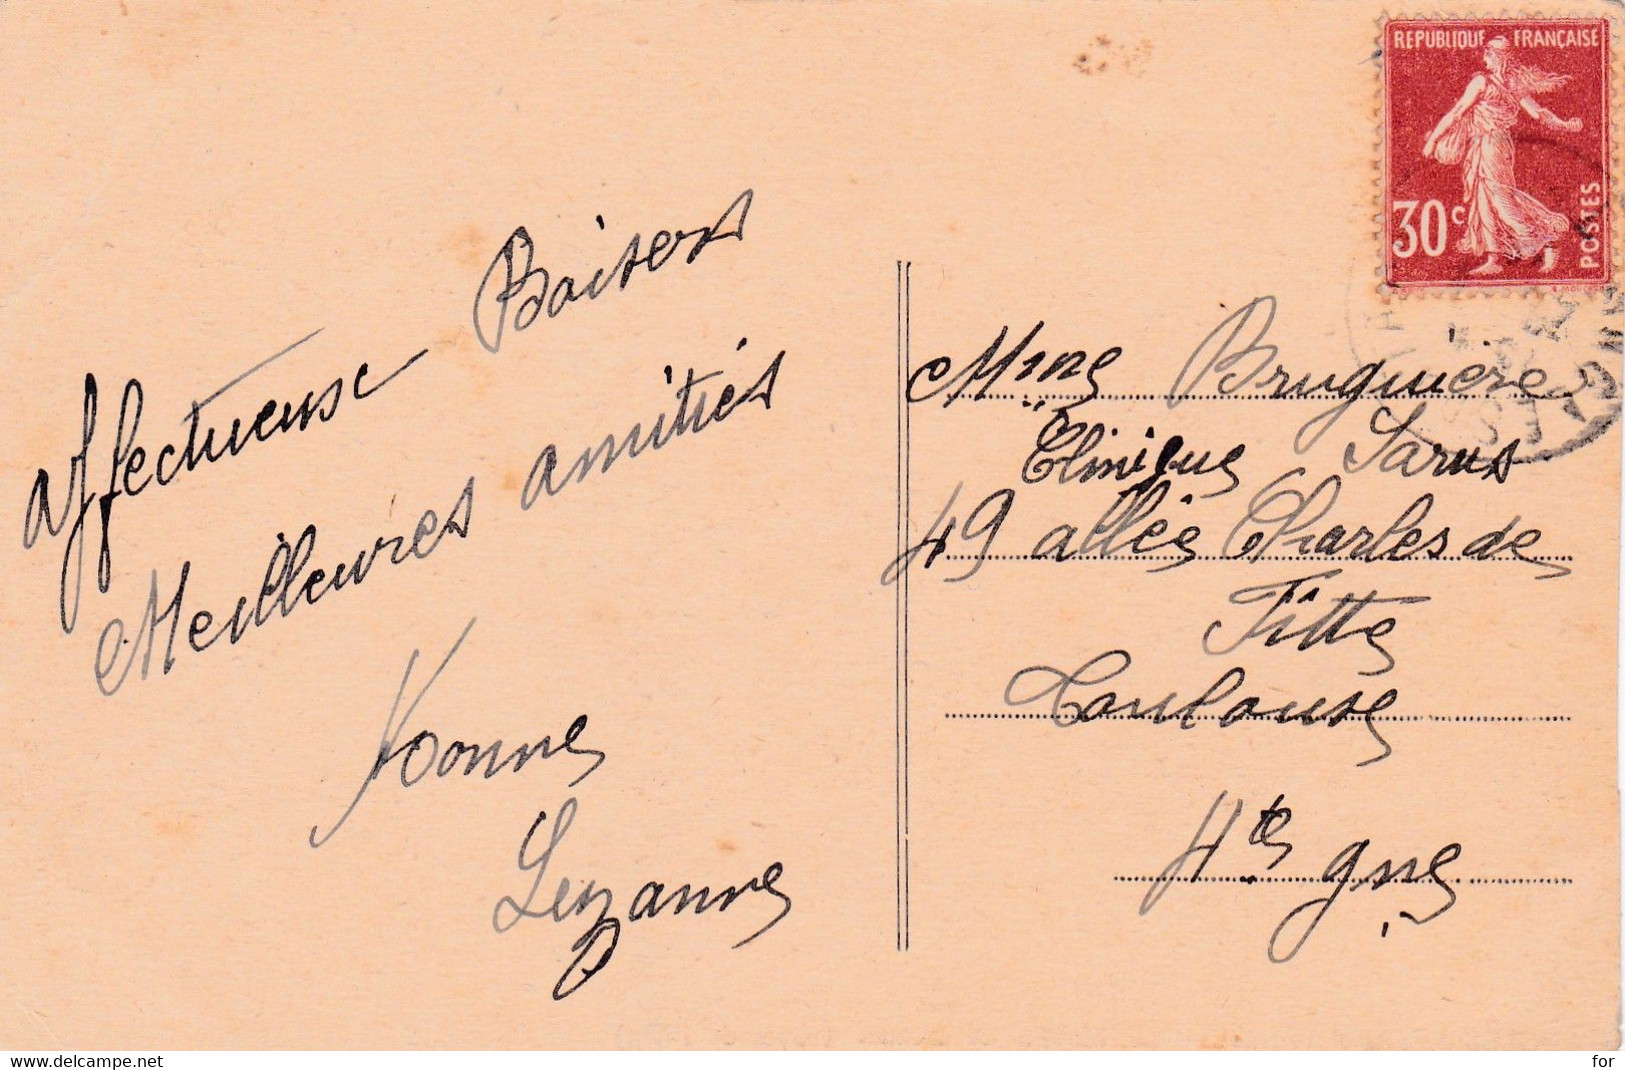 Affectueuse Baisers
Meilleures amitiés
Yvonne
Suzanne
REPUBLIQUE FRANÇAISE
30c
POSTES
Mme Bruguiere
Clinique Sarus
49 allée Charles de
Fitte
Toulouse
Hte gne
www.delcampe.net
for